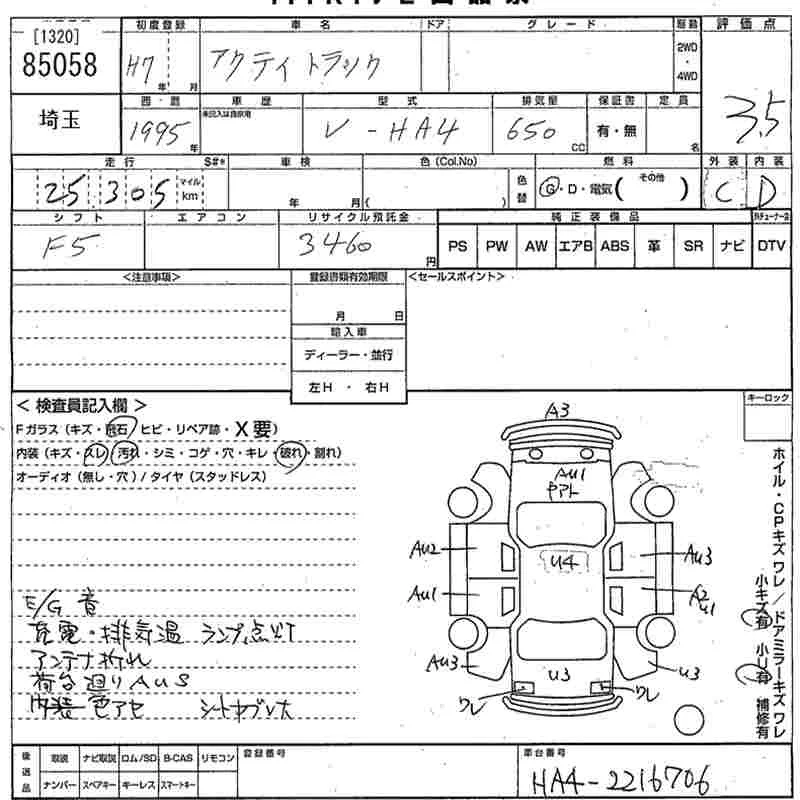 [1320]
85058
初度登録 車名 ドア グレード 駆動 評価点
H7 年 月 アクティ トラック 2WD ・ 4WD 3.5
埼玉
西暦 車歴 型式 排気量 保証書 定員
未記入は自家用
1995年 V-HA4 650 CC 有・無 名
走行 S#* 車検 色(Col.No) 燃料 外装 内装
25,305 マイル km 年 月 ( ) 色替 G・D・電気( その他 ) C D
シフト エアコン リサイクル預託金 純正装備品
F5 3460 円 PS PW AW エアB ABS 革 SR ナビ DTV
<注意事項> 登録書類有効期限 <セールスポイント>
月 日
輸入車
ディーラー・並行
左H ・ 右H
< 検査員記入欄 >
Fガラス(キズ・飛石 ヒビ・リペア跡・X要)
内装(キズ・スレ・汚れ・シミ・コゲ・穴・キレ・破れ・割れ)
オーディオ(無し・穴)/タイヤ(スタッドレス)
E/G 音
充電・排気温 ランプ点灯
アンテナ折れ
荷台廻りAUS
内装色アセ シートヤブレ大
キーロック
A3
AU1
U4
AU2
AU3
AU1
A2
U1
AU3
U3
U3
ワレ
ワレ
ホイル・CPキズ ワレ/ドアミラーキズ ワレ
小キズ有 小U有 補修有
後送品 取説 ナビ取説 ロム/SD B-CAS リモコン 登録番号 車台番号
ナンバー スペアキー キーレス スマートキー HA4-2216706